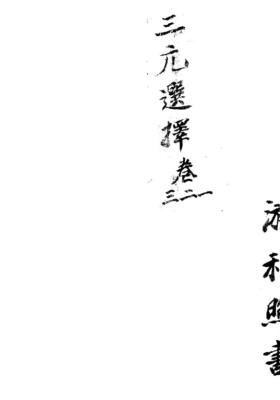 照書
三元選擇卷一二三